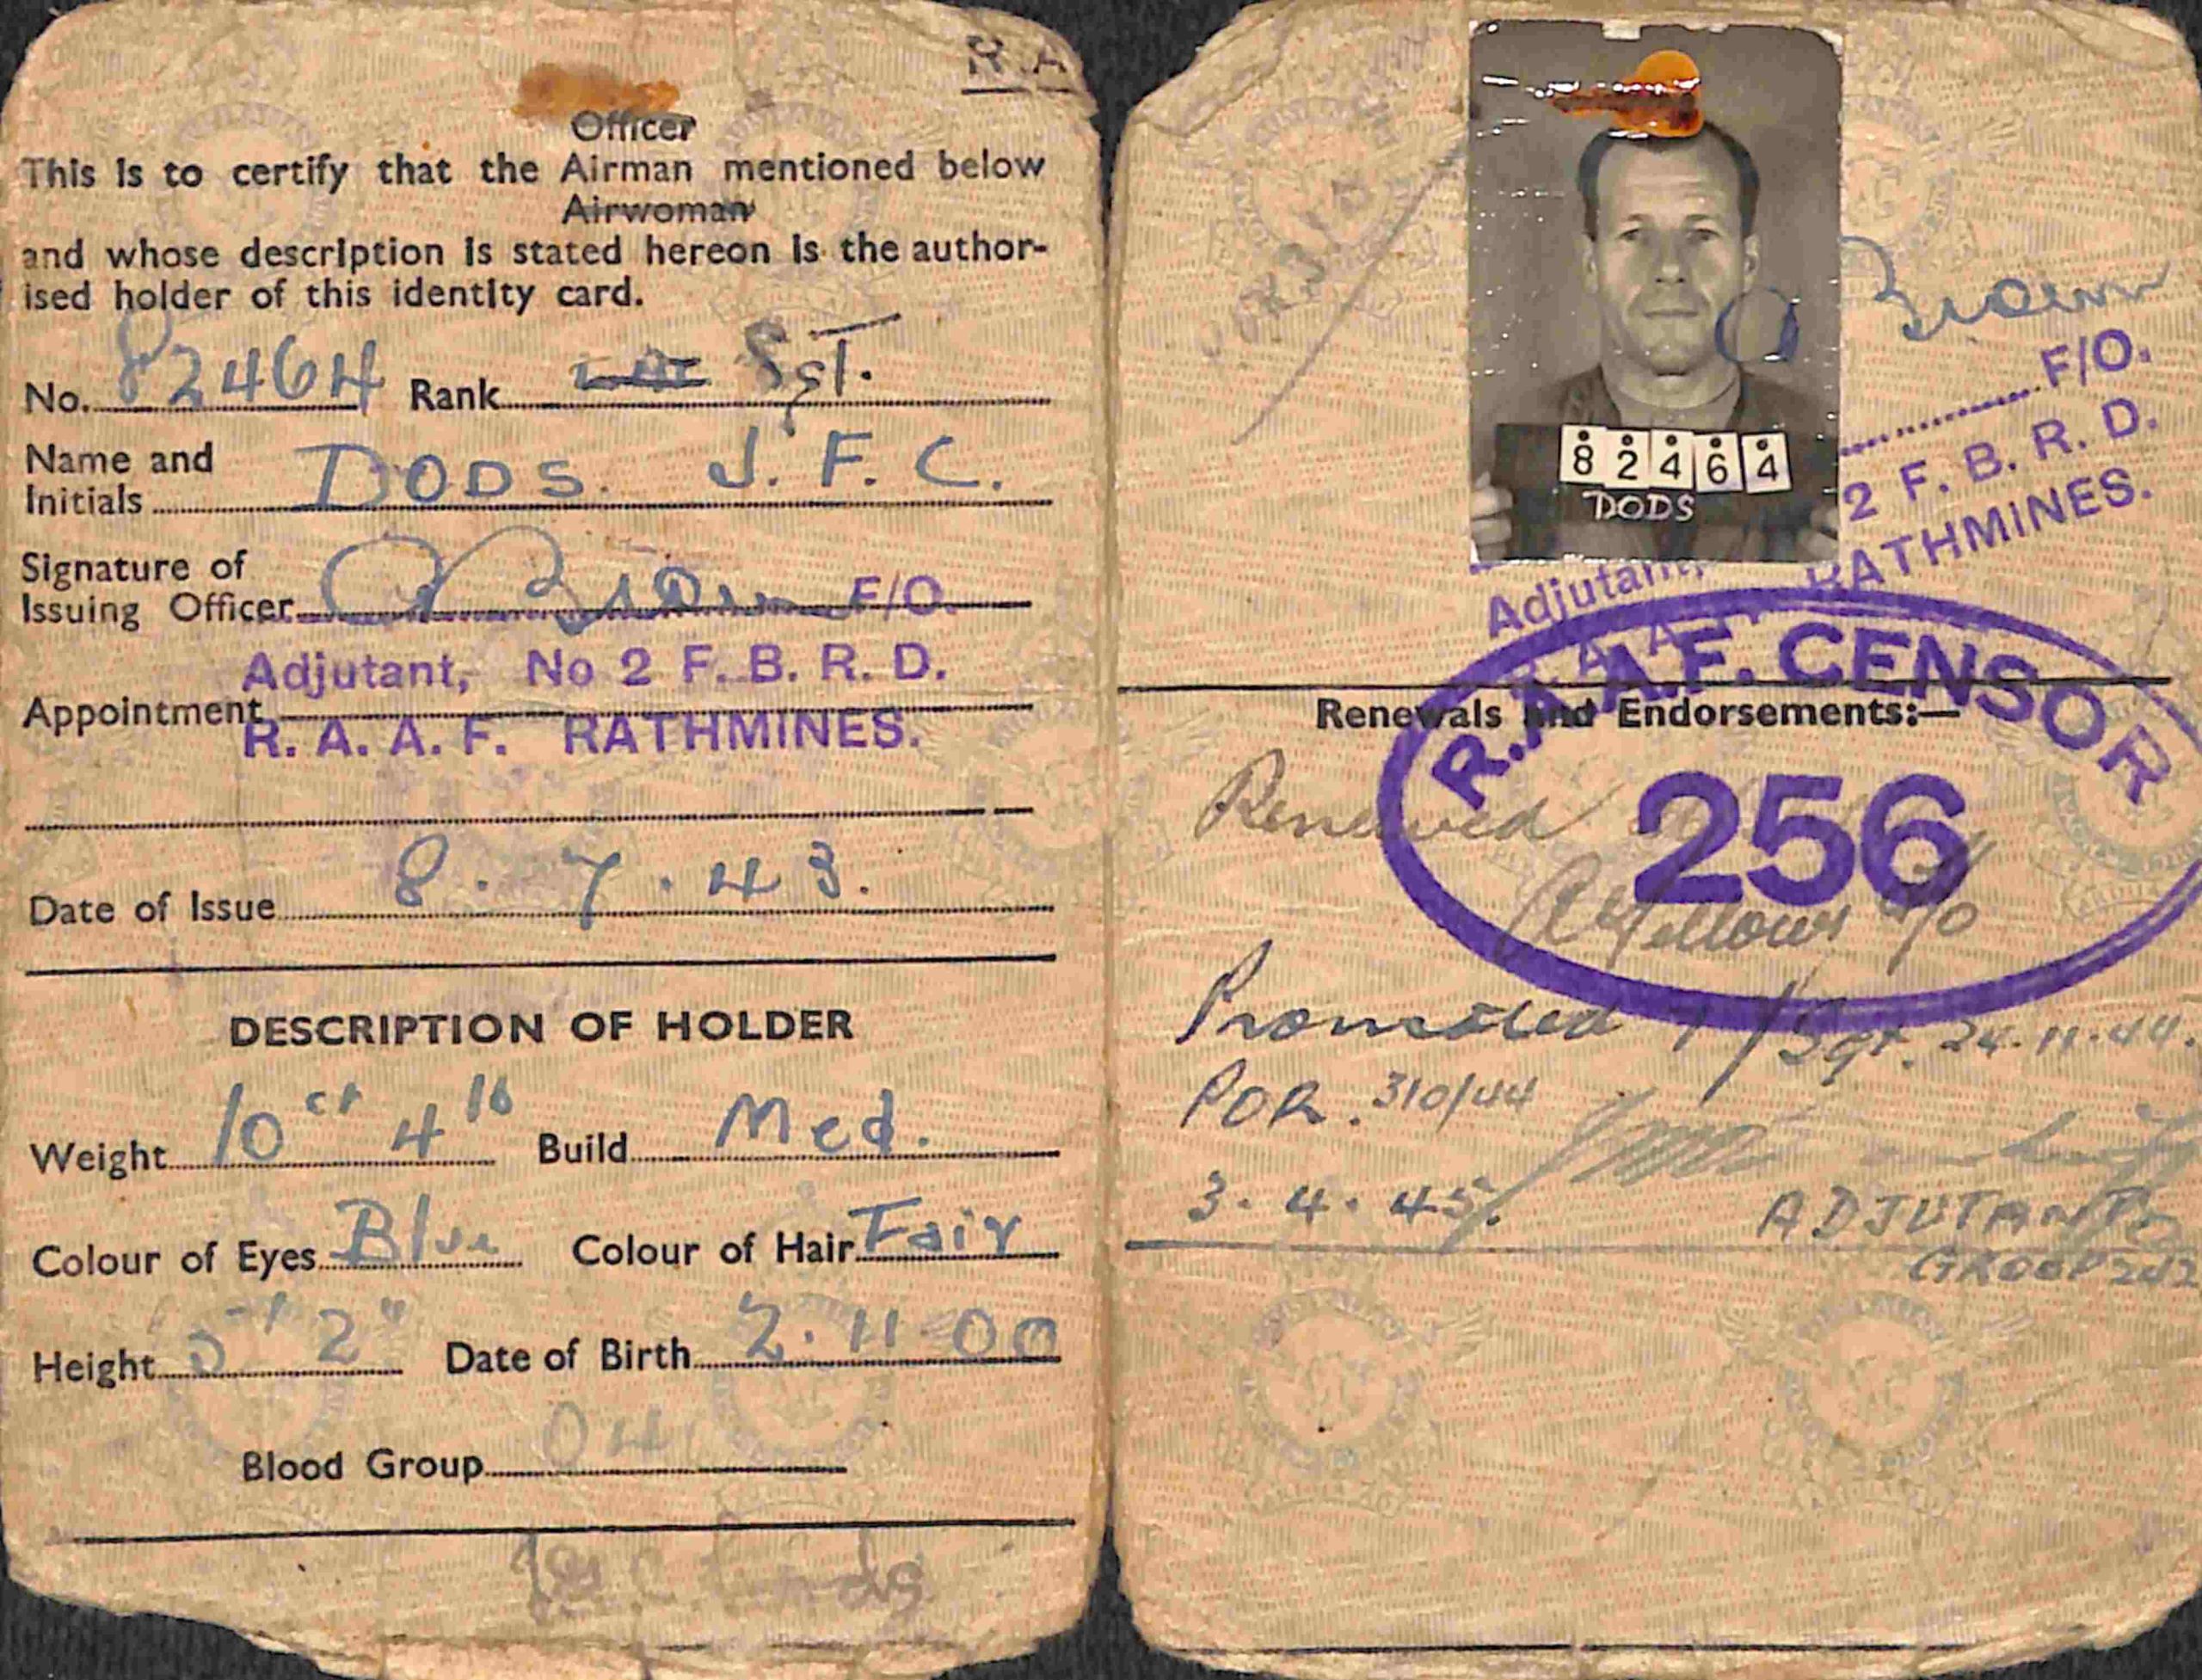 R.A
Officer
This is to certify that the Airman mentioned below
Airwoman
and whose description is stated hereon is the author-
ised holder of this identity card.
No. 82464 Rank Sgt.
Name and
Initials DODS. J. F. C.
Signature of
Issuing Officer Brown F/O.
Adjutant, No 2 F. B. R. D.
Appointment
R. A. A. F. RATHMINES.
Date of Issue 8. 7. 43.
DESCRIPTION OF HOLDER
Weight 10 st 4 lb Build Med.
Colour of Eyes Blue Colour of Hair Fair
Height 5' 2" Date of Birth 2. 11. 00
Blood Group
82464
DODS
Brown
F/O.
Adjutant, 2 F. B. R. D.
RATHMINES.
R.A.A.F. CENSOR
256
Renewals and Endorsements:—
Renewed
Promoted T/Sgt. 24.11.44.
POR. 310/44
3. 4. 45.
ADJUTANT
GROUP